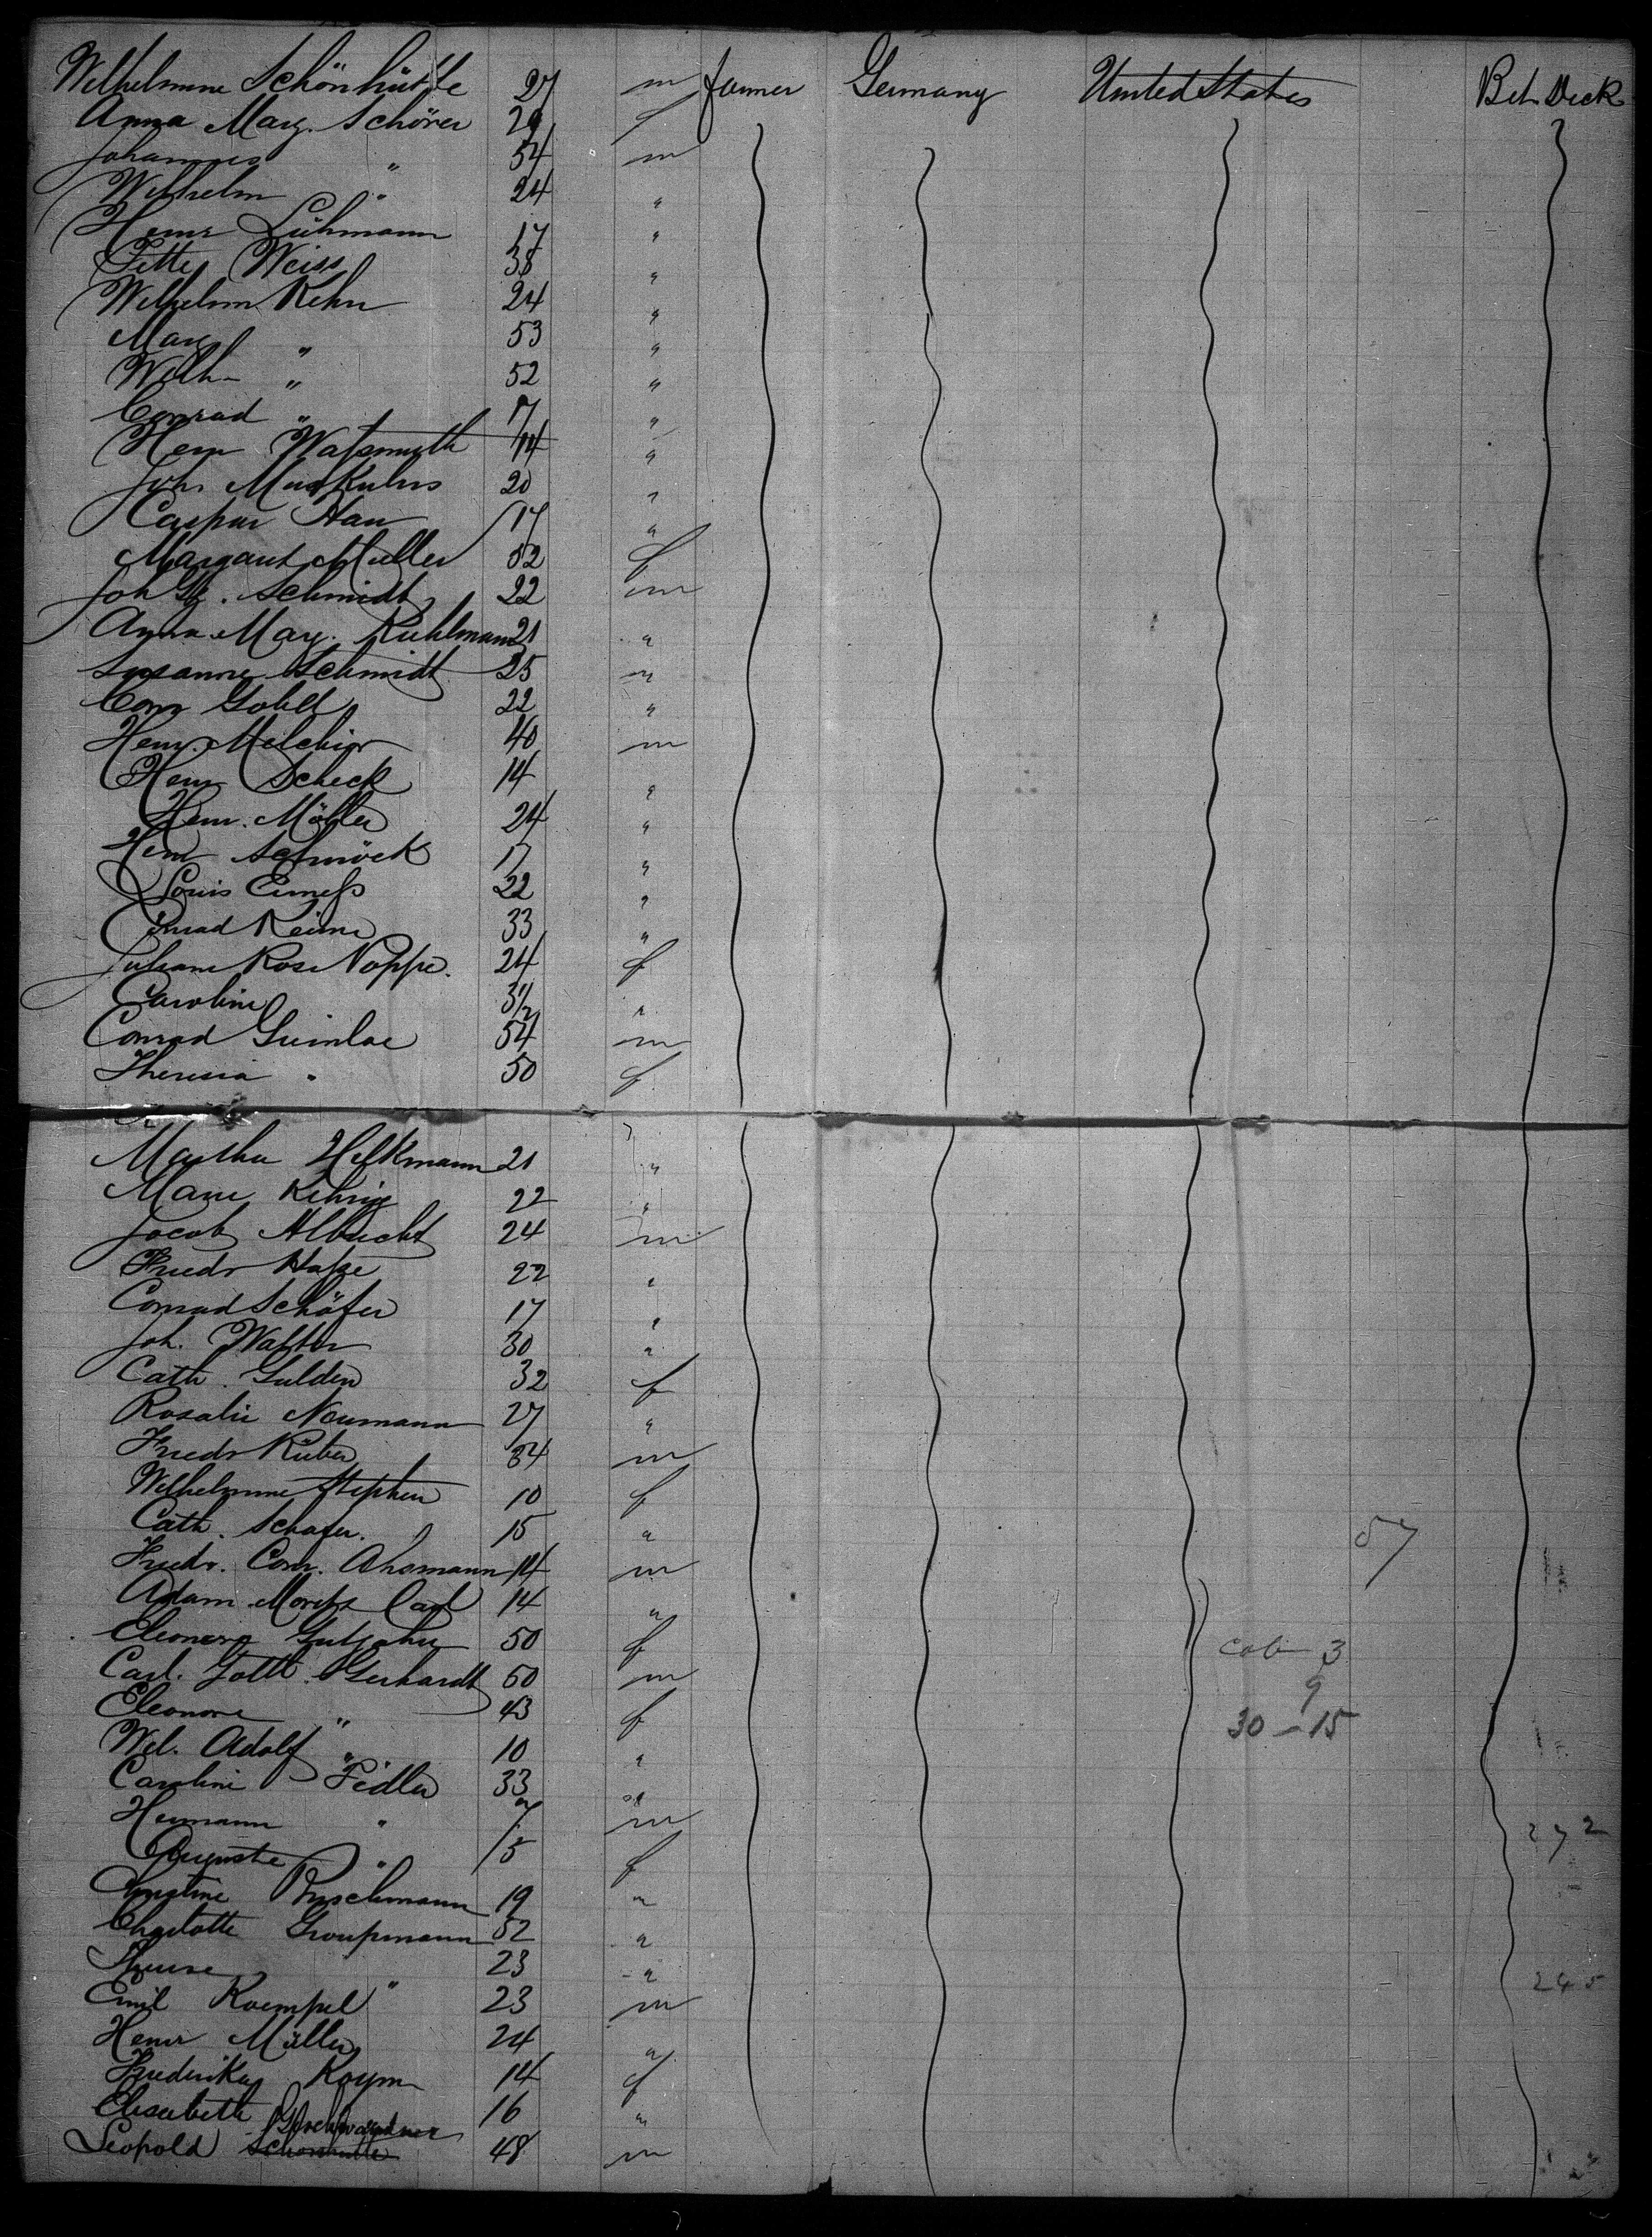 Wilhelmine Schönhütte 27 m farmer Germany United States Bet. Deck
Anna Marg. Schörer 29 f
Johannes " 54 m
Wilhelm " 24 "
Henr Lühmann 17 "
Weiss 38 "
Wilhelm Kehn 24 "
Marg " 53 "
Wilh " 52 "
Conrad " 17 "
Henr 14 "
Joh 20 "
Caspar Hau 17 "
Margaret Müller 52 f
Joh Gg. Schmidt 22 m
Anna Marg. Kuhlmann 21 "
Susanne Schmidt 25 "
Conr 22 "
Henr. Melchior 40 m
Henr Scheck 14 "
Henr. Möller 24 "
Henr Schmöck 17 "
Louis 22 "
Conrad Reim 33 "
Juliane Rose Noppe. 24 f
Caroline 3 1/2 "
Conrad 54 m
Theresia " 50 f
Martha 21 "
Marie Kehrig 22 "
Jacob Albrecht 24 m
Friedr 22 "
Conrad Schäfer 17 "
Joh. Walter 30 "
Cath. Gulden 32 f
Rosalie Neumann 27 "
Friedr 34 m
Wilhelmine Stephen 10 f
Cath. Schafer. 15 "
57
Friedr. Conr. Ahsmann 14 m
Adam Moritz Carl 14 "
Eleonora 50 f
cab 3
Carl. Gottl. Gerhardt 50 m
9
Eleonore " 43 f
30 - 15
Wil. Adolf " 10 "
Caroline Fidler 33 "
Hermann " 7 m
272
Auguste " 5 f
Christine 19 "
Charlotte Groupmann 52 "
" 23 "
245
Emil Kaempel 23 m
Henr Müller 24 "
Friederike Koym 14 f
Elisabeth 16 "
Leopold Schönhütte 48 m